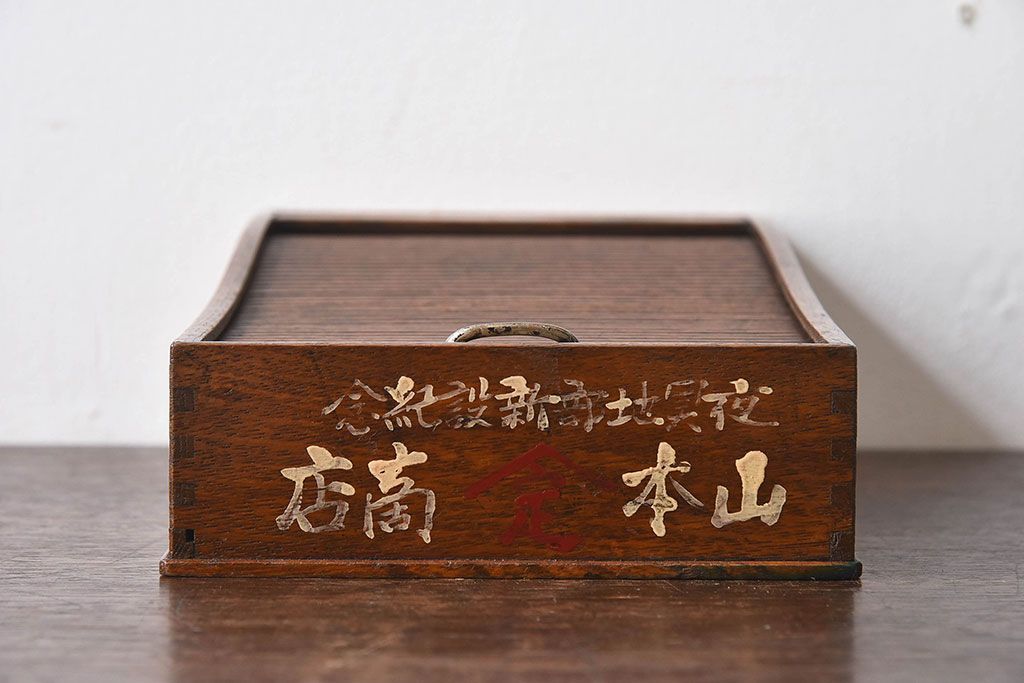 夜具地部新設紀念
山本商店